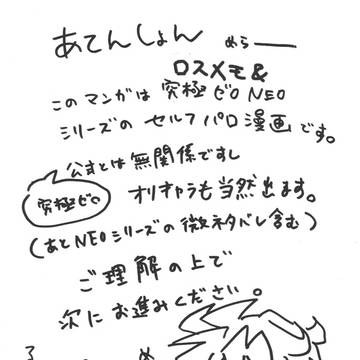 あてんしょん めらー
ロスメモ&
このマンガは 究極ゼロNEO
シリーズの セルフパロ漫画です。
公式とは無関係ですし
究極ゼロ
オリキャラも当然出ます。
(あとNEOシリーズの微ネタバレ含む)
ご理解の上で
次にお進みください。